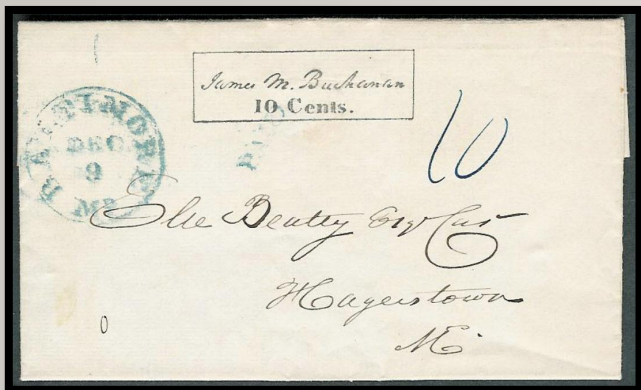 James M. Buchanan
10 Cents.
PAID
10
BALTIMORE Md.
DEC
9
Elie Beatty Esqr Cas
Hagerstown
Md.